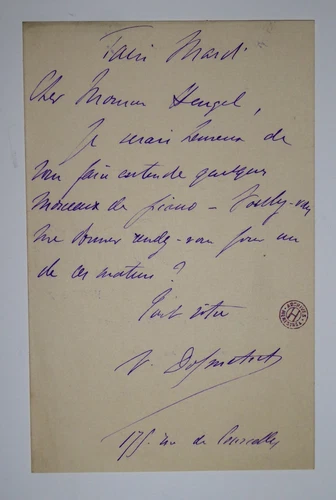 Paris Mardi
Cher Monsieur Heugel,
Je serais heureux de
vous faire entendre quelques
morceaux de piano – Voulez-vous
me donner rendez-vous pour un
de ces matins ?
Tout vôtre
V. Dolmetsch
175 rue de Courcelles